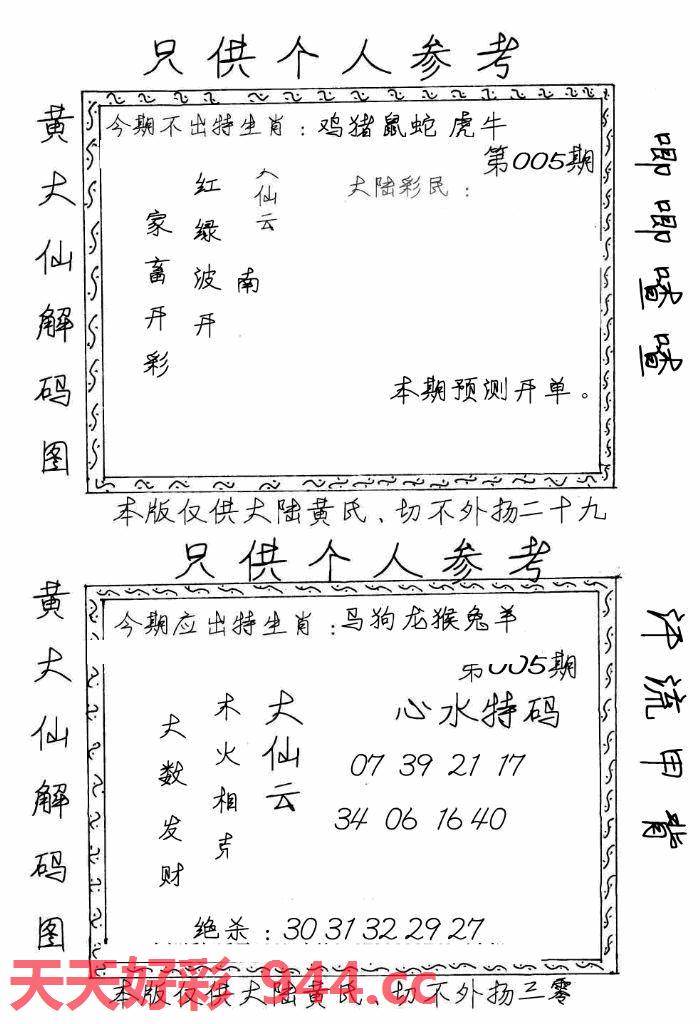 只供个人参考
黄大仙解码图
今期不出特生肖：鸡猪鼠蛇虎牛
第005期
大陆彩民：
大仙云
南
红绿波开
家畜开彩
本期预测开单。
唧唧喳喳
本版仅供大陆黄氏、切不外扬二十九
只供个人参考
黄大仙解码图
今期应出特生肖：马狗龙猴兔羊
005期
心水特码
大仙云
木火相克
大数发财
07 39 21 17
34 06 16 40
绝杀：30 31 32 29 27
汗流甲背
天天好彩 944.cc
本版仅供大陆黄氏、切不外扬三零